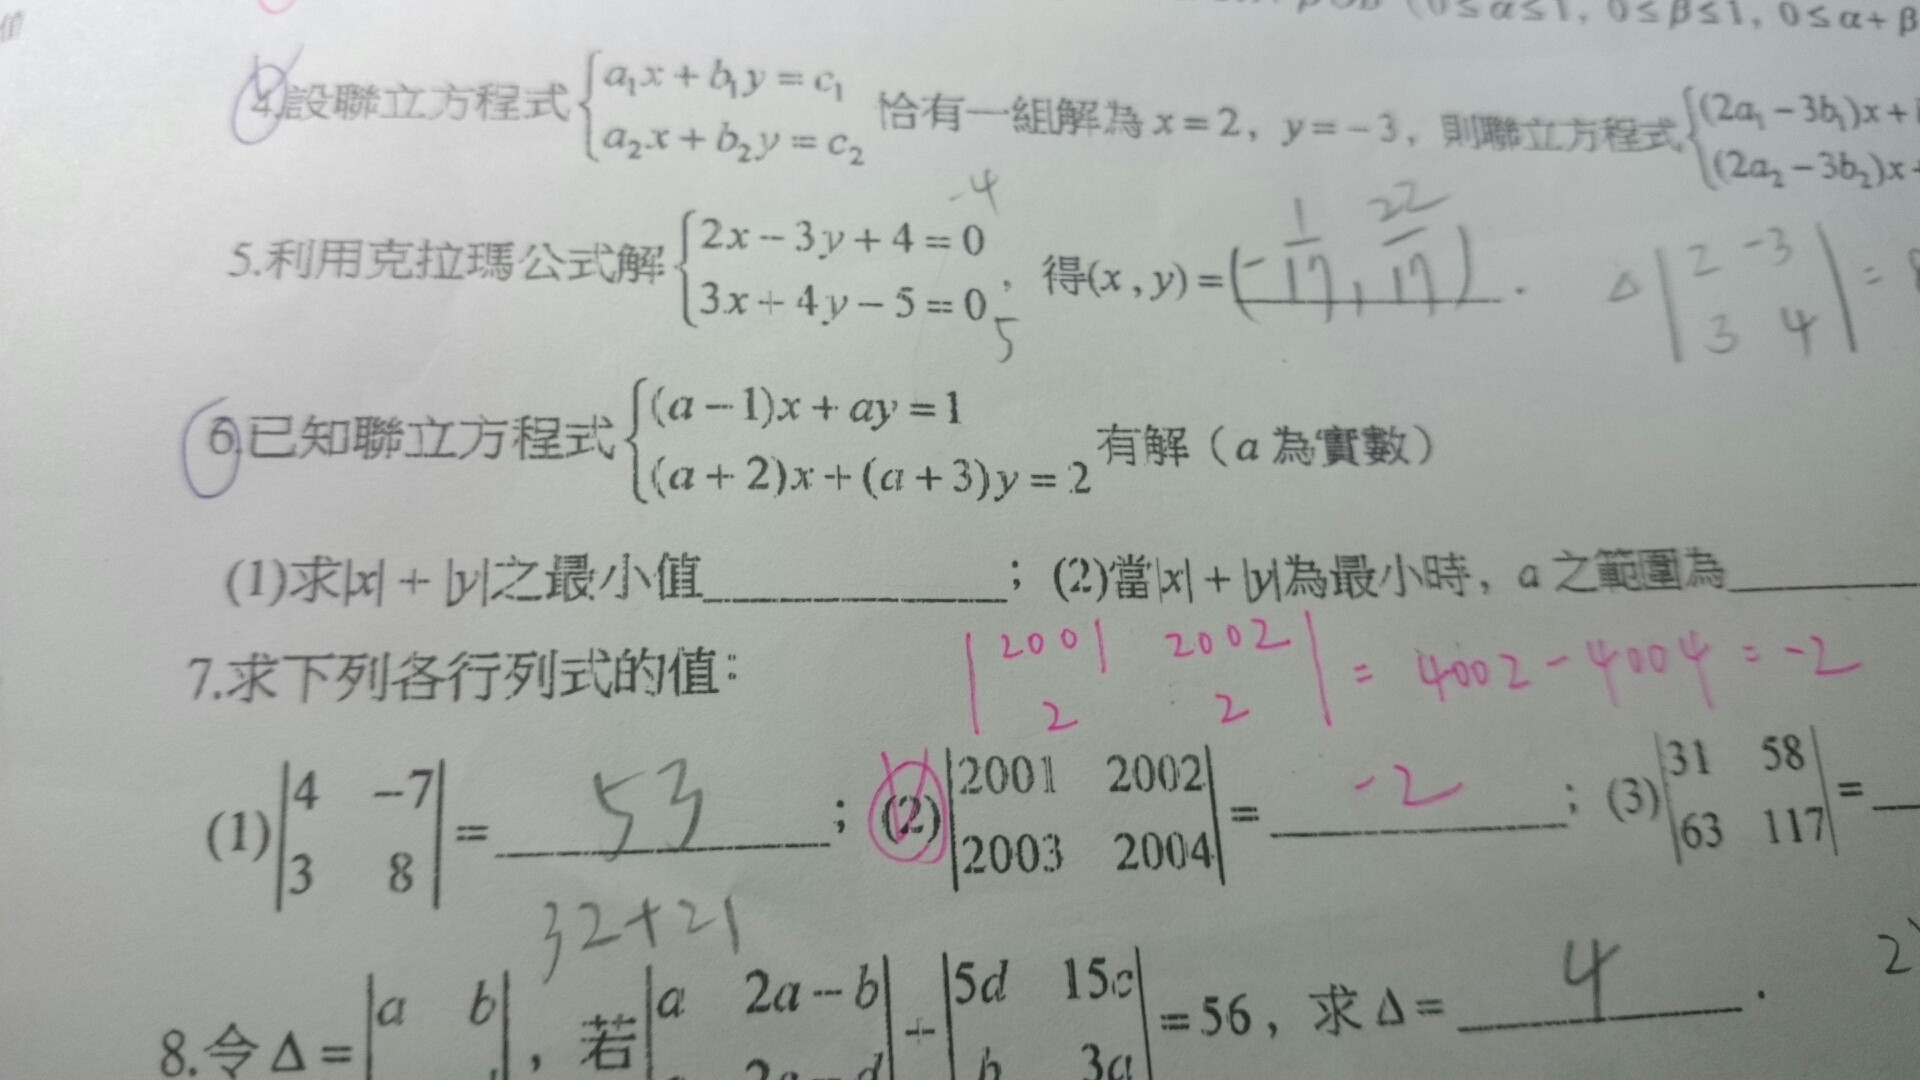 值
(0≤α≤1, 0≤β≤1, 0≤α+β
4.設聯立方程式{a₁x+b₁y=c₁ a₂x+b₂y=c₂ 恰有一組解為x=2, y=-3, 則聯立方程式{(2a₁-3b₁)x+ (2a₂-3b₂)x+
5.利用克拉瑪公式解{2x-3y+4=0 3x+4y-5=0, 得(x,y)=(-1/17, 22/17).
-4
5
Δ|2 -3
3 4|=
6.已知聯立方程式{(a-1)x+ay=1 (a+2)x+(a+3)y=2 有解(a為實數)
(1)求|x|+|y|之最小值______; (2)當|x|+|y|為最小時, a之範圍為______
7.求下列各行列式的值:
|2001 2002
2 2|=4002-4004=-2
(1)|4 -7
3 8|=53;
(2)|2001 2002
2003 2004|=-2;
(3)|31 58
63 117|=
32+21
8.令Δ=|a b|, 若|a 2a-b|+|5d 15c
b 3a|=56, 求Δ=4.
2